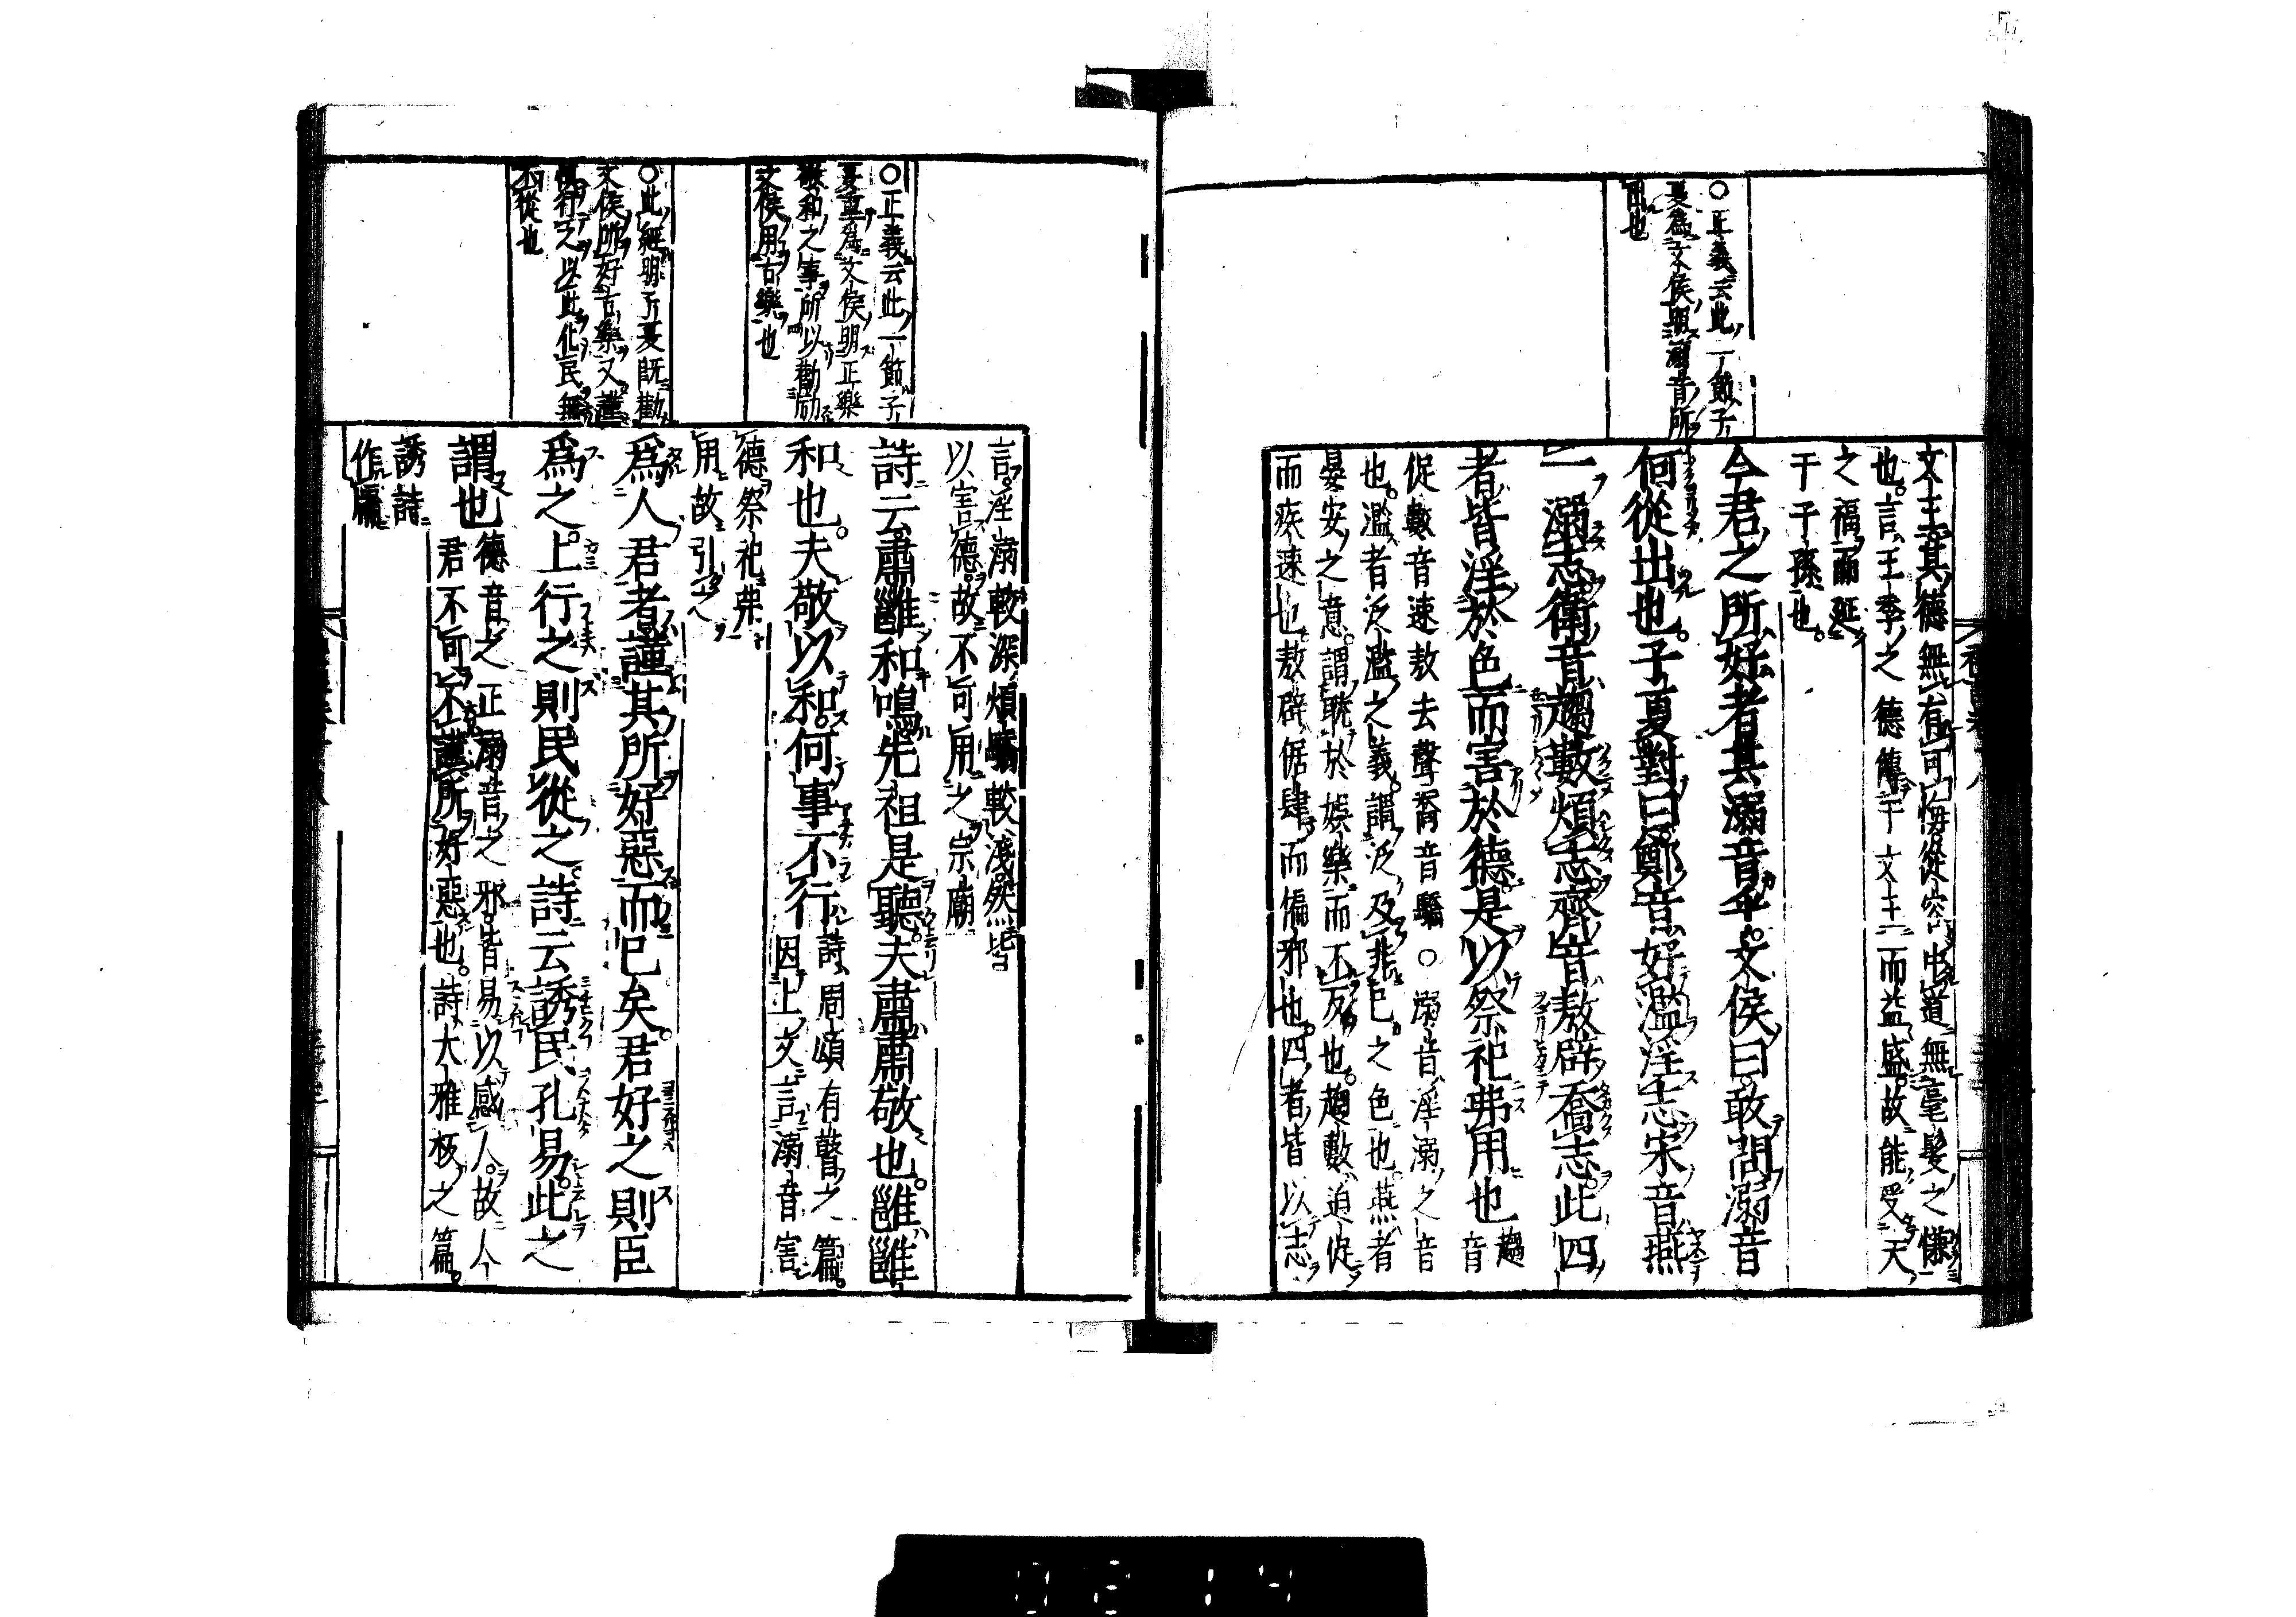 ○正義云此一節子
夏爲文侯明溺音所
由也
文王其德無有可悔從容中道無毫髮之慊
也言王季之德傳于文王而益盛故能受天
之福而延
于子孫也
今君之所好者其溺音乎文侯曰敢問溺音
何從出也子夏對曰鄭音好濫淫志宋音燕
女溺志衛音趨數煩志齊音敖辟喬志此四
者皆淫於色而害於德是以祭祀弗用也趨音
促數音速敖去聲喬音驕○溺音淫溺之音
也濫者泛濫之義謂泛及非己之色也燕者
晏安之意謂耽於娛樂而不反也趨數迫促
而疾速也敖辟倨肆而偏邪也四者皆以志
○正義云此一節子
夏重爲文侯明正樂
敬和之事所以勸勵
文侯用古樂也
○此經明子夏既勸
文侯所好古樂又謹
愼行之以此化民無
不從也
言淫溺較深煩驕較淺然皆
以害德故不可用之宗廟
詩云肅雝和鳴先祖是聽夫肅肅敬也雝雝
和也夫敬以和何事不行詩周頌有瞽之篇
因上文言溺音害
德祭祀弗
用故引之
爲人君者謹其所好惡而已矣君好之則臣
爲之上行之則民從之詩云誘民孔易此之
謂也德音之正溺音之邪皆易以感人故人
君不可不謹所好惡也詩大雅板之篇
誘詩
作牖